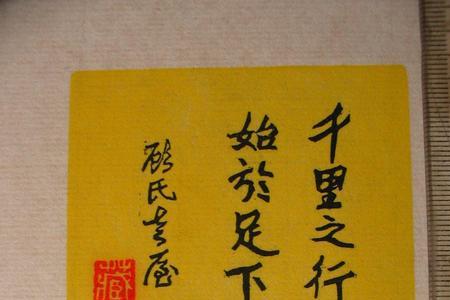 千里之行
始於足下
顧氏書屋
藏